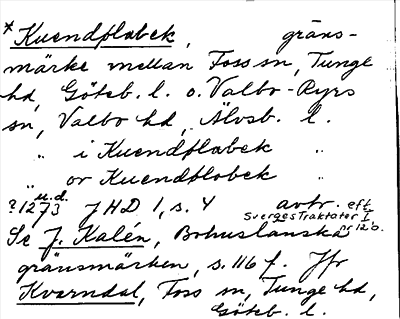 *Kuendflabek, gräns-
märke mellan Foss sn, Tunge
hd, Göteb. l. o. Valbo-Ryrs
sn, Valbo hd, Älvsb. l.
" i Kuendflabek "
" or Kuendflobek "
?1273 u.d. JHD 1, s. 4 avtr. eft.
Sverges Traktater I
nr 126.
Se J. Kalén, Bohuslänska
gränsmärken, s. 116 f. Jfr
Kvarndal, Foss sn, Tunge hd,
Göteb. l.